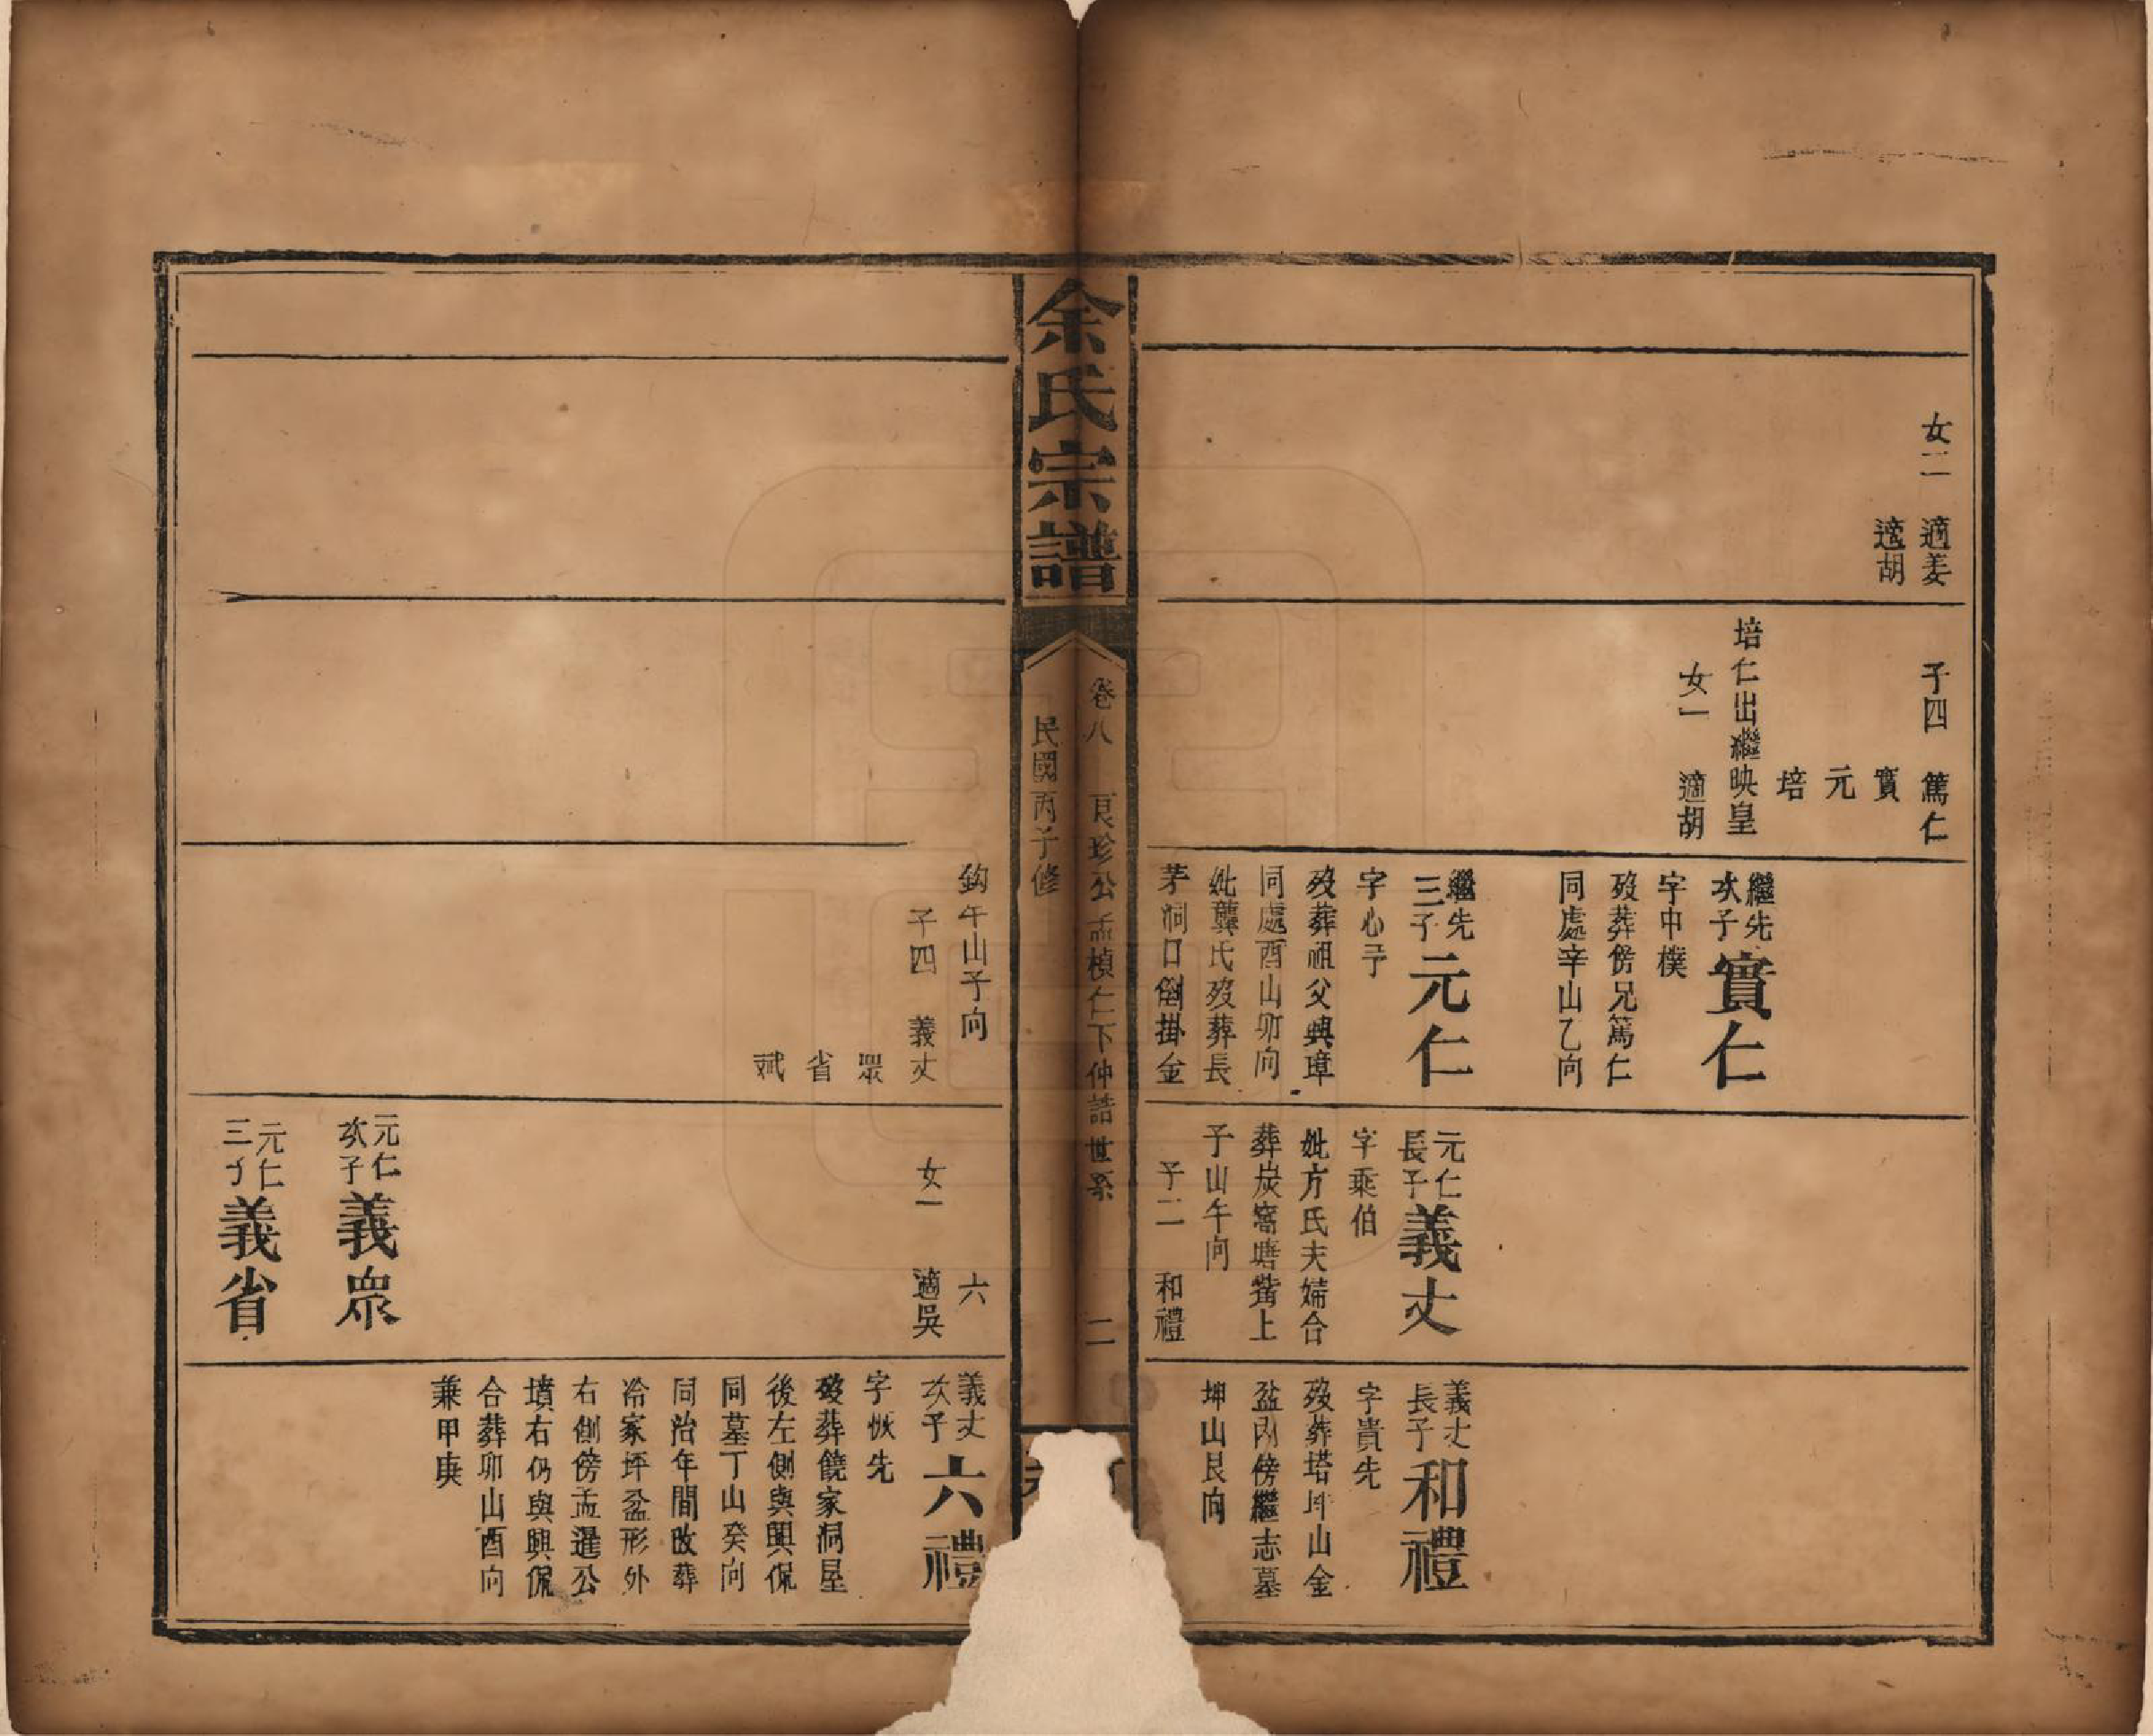 女二　適姜
適胡
子四　篤仁
實
元
培
培仁出繼映皇
女一　適胡
繼先
次子
實仁
字中樸
歿葬傍兄篤仁
同處辛山乙向
繼先
三子
元仁
字心予
歿葬祖父興璋
同處酉山卯向
妣龔氏歿葬長
茅洞口倒掛金
元仁
長子
義丈
字乘伯
妣方氏夫婦合
葬炭窩塘塝上
子山午向
子二　和禮
義丈
長子
和禮
字貴先
歿葬塔坪山金
盆內傍繼志墓
坤山艮向
余氏宗譜
卷八　良珍公孟楨仁下仲誥世系　二
民國丙子修
鈎午山子向
子四　義丈
眾
省
斌
六
女一　適吳
元仁
次子
義眾
元仁
三子
義省
義丈
次子
六禮
字恢先
歿葬饒家洞屋
後左側與興侃
同墓丁山癸向
同治年間改葬
冷家坪盆形外
右側傍孟暹公
墳右仍與興侃
合葬卯山酉向
兼甲庚